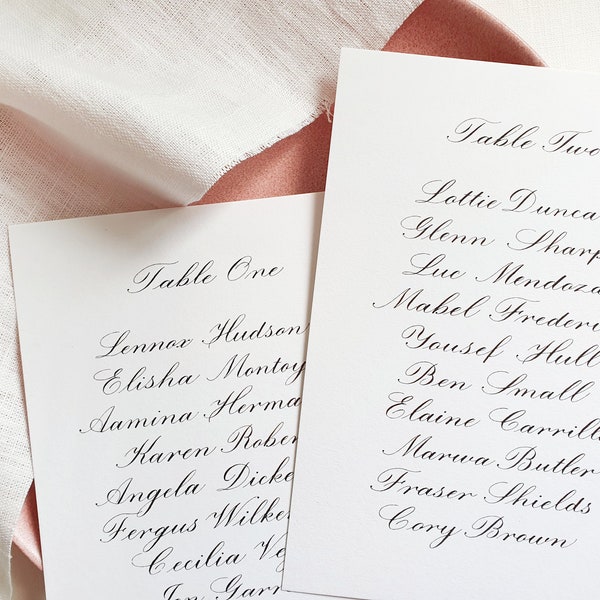 Table One
Lennox Hudson
Elisha Montoy
Aamina Herma
Karen Rober
Angela Dicke
Fergus Wilke
Cecilia Ve
Jen Garr
Table Two
Lottie Dunca
Glenn Sharp
Luc Mendoza
Mabel Frederi
Yousef Hull
Ben Small
Elaine Carrill
Marwa Butler
Fraser Shields
Cory Brown